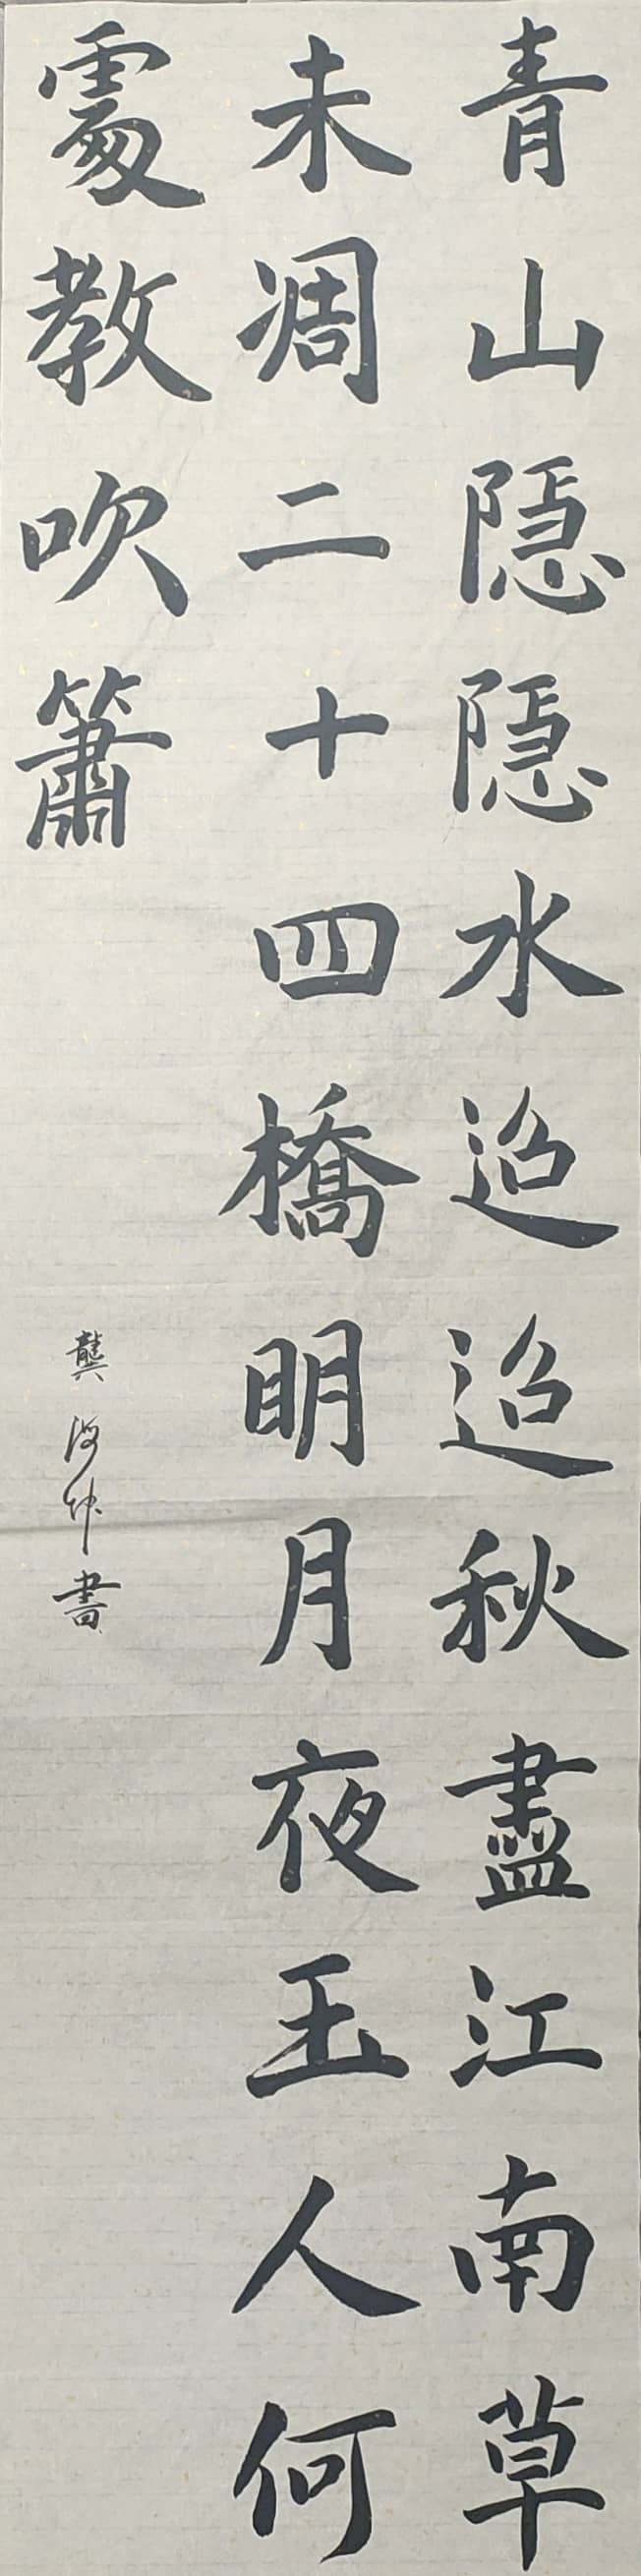 青山隐隐水迢迢秋盡江南草
未凋二十四橋明月夜玉人何
處教吹簫
龔海坤書